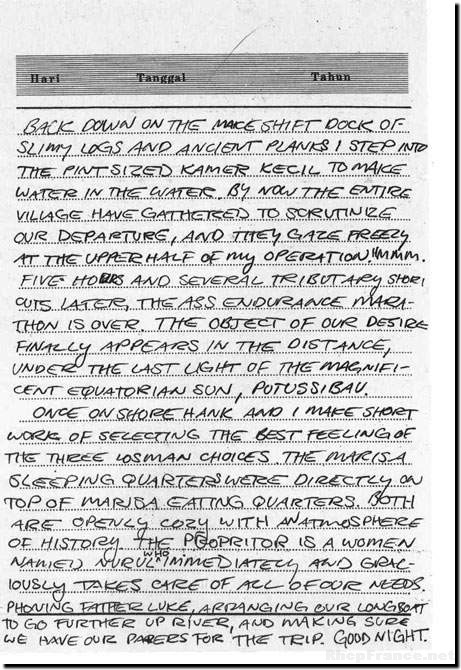 Hari Tanggal Tahun
BACK DOWN ON THE MAKE SHIFT DOCK OF
SLIMY LOGS AND ANCIENT PLANKS I STEP INTO
THE PINT SIZED KAMER KECIL TO MAKE
WATER IN THE WATER. BY NOW THE ENTIRE
VILLAGE HAVE GATHERED TO SCRUTINIZE
OUR DEPARTURE, AND THEY GAZE FREELY
AT THE UPPER HALF OF MY OPERATION "MMM.
FIVE HOURS AND SEVERAL TRIBUTARY SHORT
CUTS LATER, THE ASS ENDURANCE MARA-
THON IS OVER. THE OBJECT OF OUR DESIRE
FINALLY APPEARS IN THE DISTANCE,
UNDER THE LAST LIGHT OF THE MAGNIFI-
CENT EQUATORIAN SUN, PUTUSSIBAU.
ONCE ON SHORE HANK AND I MAKE SHORT
WORK OF SELECTING THE BEST FEELING OF
THE THREE LOSMAN CHOICES. THE MARISA
SLEEPING QUARTERS WERE DIRECTLY ON
TOP OF MARISA EATING QUARTERS. BOTH
ARE OPENLY COZY WITH AN ATMOSPHERE
OF HISTORY THE PROPRITOR IS A WOMEN
NAMED NURUL WHO IMMEDIATELY AND GRAC-
IOUSLY TAKES CARE OF ALL OF OUR NEEDS.
PHONING FATHER LUKE, ARRANGING OUR LONGBOAT
TO GO FURTHER UP RIVER, AND MAKING SURE
WE HAVE OUR PAPERS FOR THE TRIP. GOOD NIGHT.
RhcpFrance.net